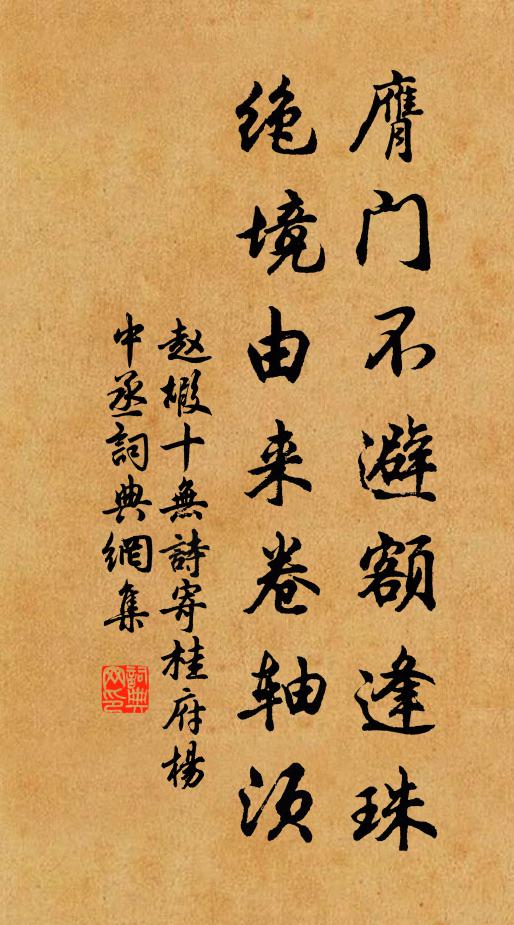 膺门不避额逢珠
绝境由来卷轴须
赵榝十無詩寄桂府楊
中丞詞典網集
詞典
网印